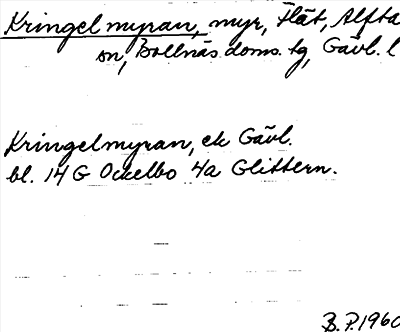 Kringelmyran, myr, Flät, Alfta
sn, Bollnäs doms. tg, Gävl. l
Kringelmyran, ek Gävl.
bl. 14 G Ockelbo 4a Glittern.
B. P. 1960